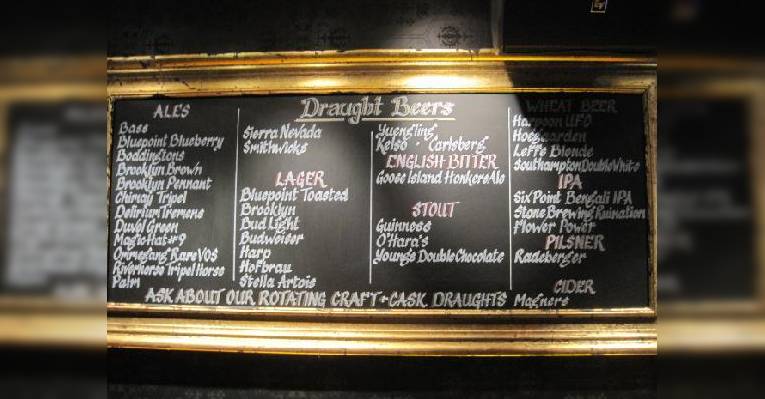 Draught Beers
ALES
Bass
Bluepoint Blueberry
Boddingtons
Brooklyn Brown
Brooklyn Pennant
Chimay Tripel
Delirium Tremens
Duvel Green
Magic Hat #9
Ommegang Rare VOS
Riverhorse Tripel Horse
Palm
Sierra Nevada
Smithwicks
LAGER
Bluepoint Toasted
Brooklyn
Bud Light
Budweiser
Harp
Hofbrau
Stella Artois
Yuengling
Kelso · Carlsberg
ENGLISH BITTER
Goose Island Honkers Ale
STOUT
Guinness
O'Hara's
Young's Double Chocolate
WHEAT BEER
Harpoon UFO
Hoegaarden
Leffe Blonde
Southampton Double White
IPA
Six Point Bengali IPA
Stone Brewing Ruination
Flower Power
PILSNER
Radeberger
CIDER
Magners
ASK ABOUT OUR ROTATING CRAFT + CASK DRAUGHTS